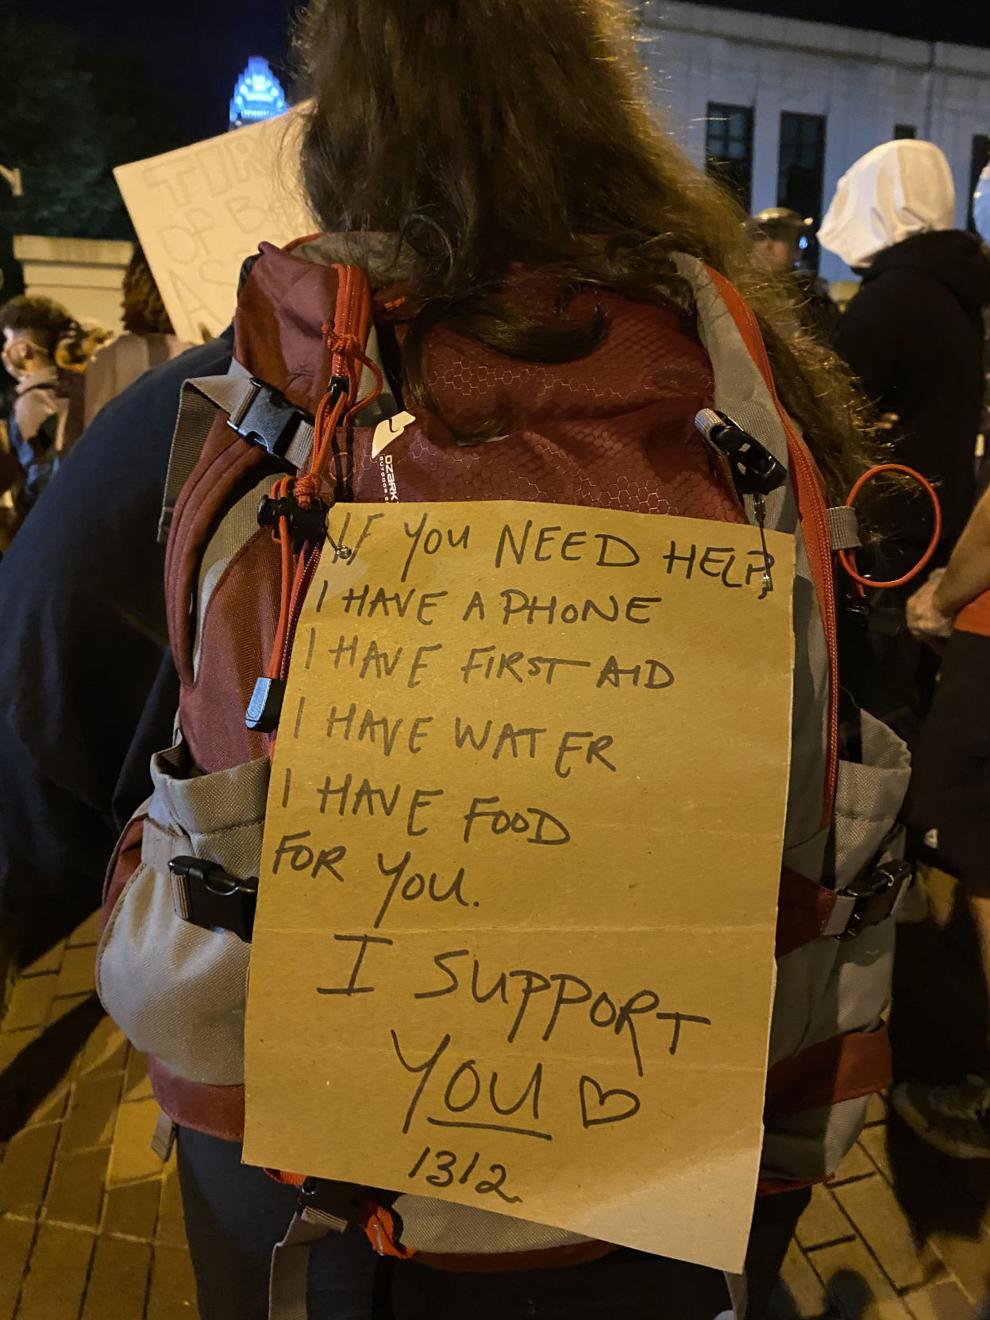 TIR
OF B
AS
A
OZARK
IF YOU NEED HELP
I HAVE A PHONE
I HAVE FIRST AID
I HAVE WATER
I HAVE FOOD
FOR YOU.
I SUPPORT
YOU ♡
1312